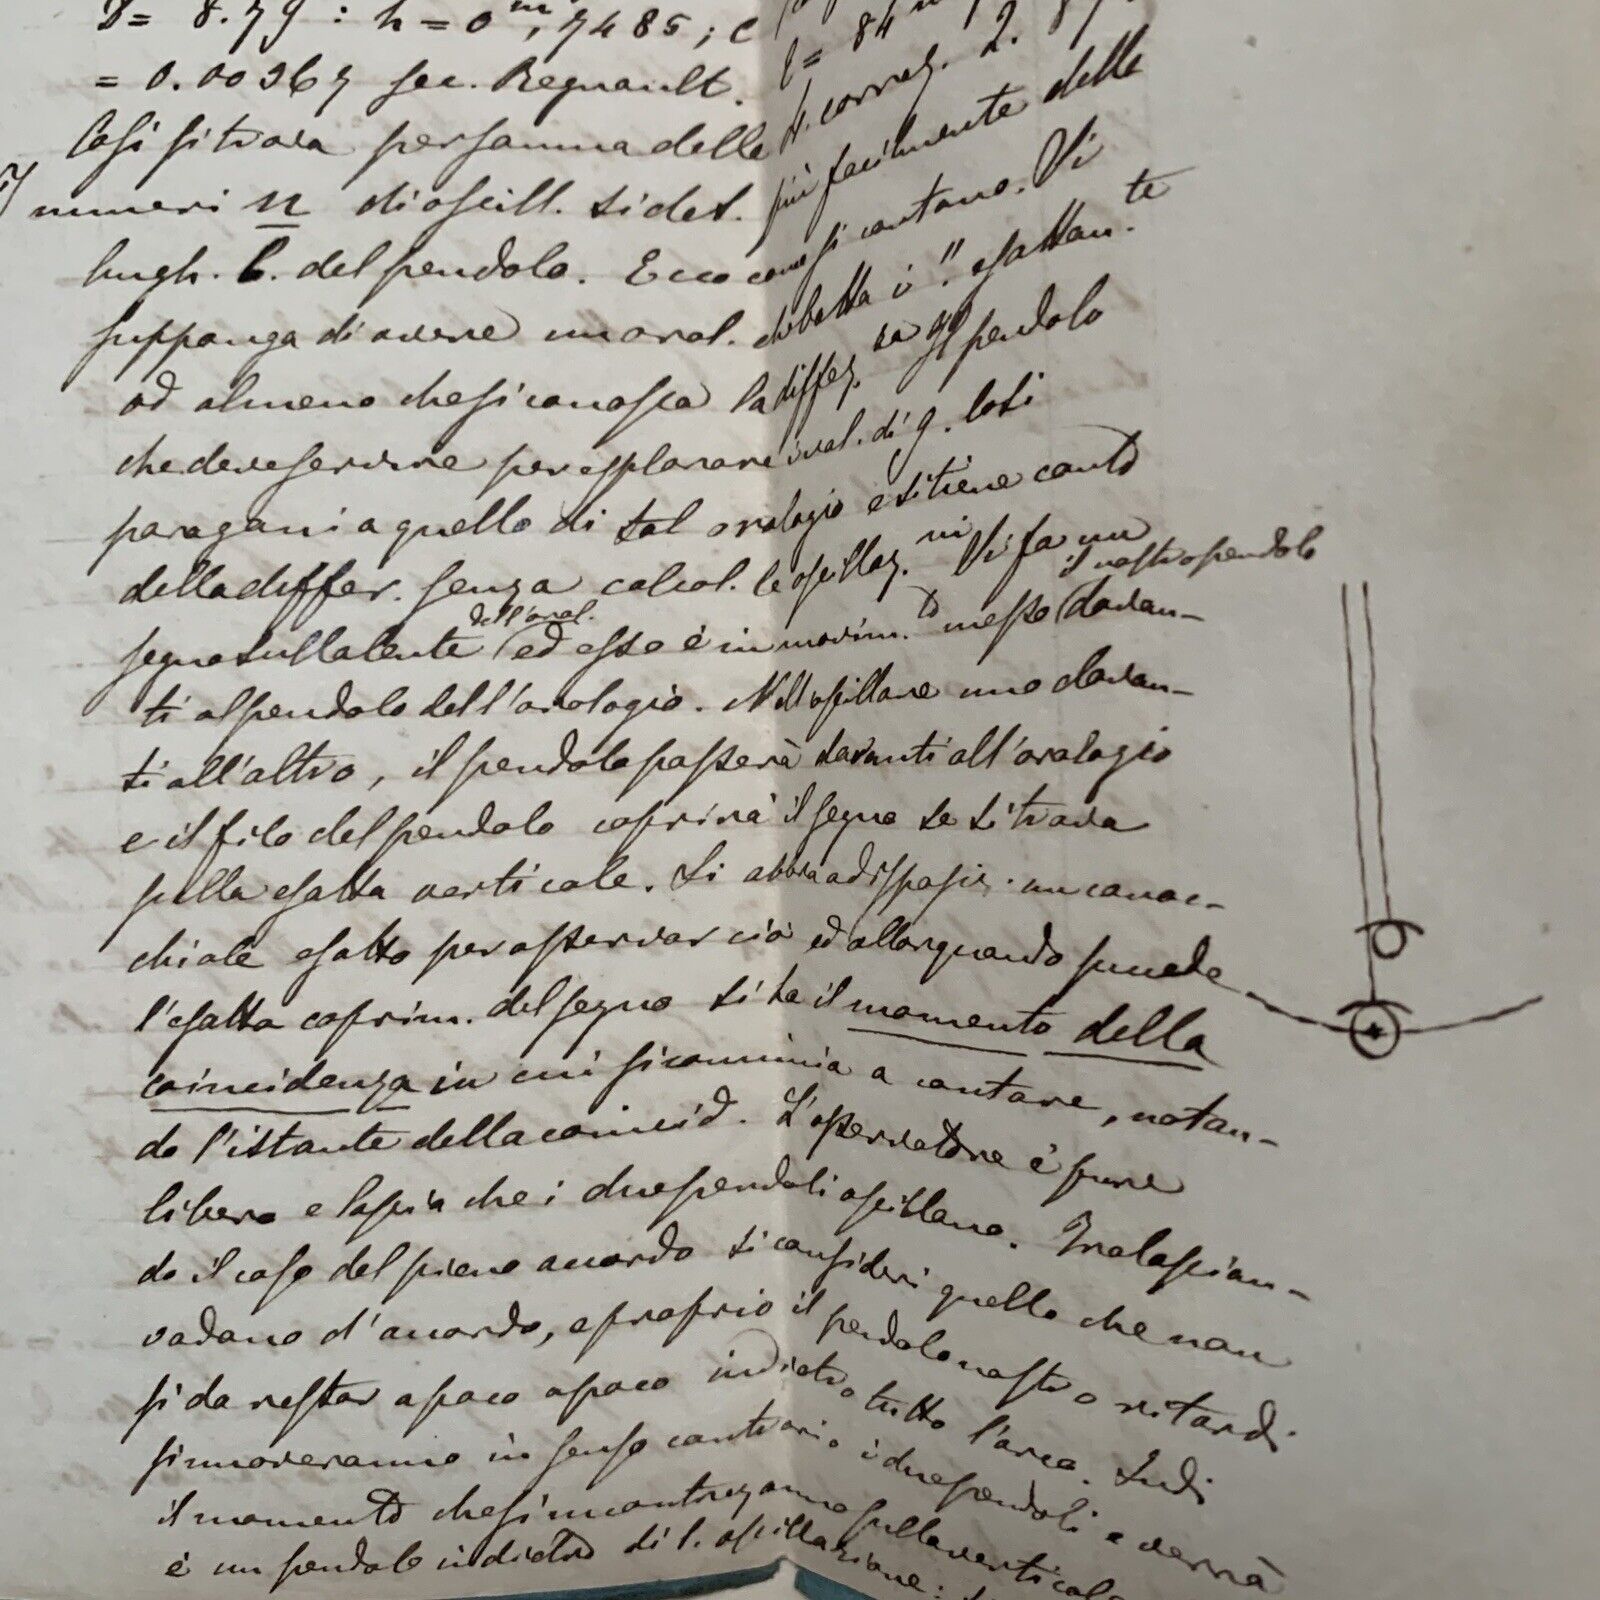 = 8.79 : h = 0^m, 7485 ; c
= 0.00367 sec. Regnault.
Così si trova per somma delle
numeri n di oscill. si det. più facilmente della
lungh. l. del pendolo. Ecco come si contano. Si
supponga di avere un orol. che batta i " esattam.te
od almeno che si conosca la differ.
che deve servire per esplorare i val. di g. Così
paragoni a quello di tal orologio e si tiene conto
della differ. senza calcol. le oscillaz.ni Si fa un
segno sulla lente dell'orol. ed esso è in movim.to messo il nostro pendolo davan-
ti al pendolo dell'orologio. Nell'oscillare uno davan-
ti all'altro, il pendolo passerà davanti all'orologio
e il filo del pendolo coprirà il segno se si trova
sulla esatta verticale. Si abbia a disposiz. un canoc-
chiale esatto per osservar ciò ed allorquando succede
l'esatta coprim. del segno si ha il momento della
coincidenza in cui si comincia a contare, notan-
do l'istante della coincid. L'osservatore è pure
libero e lascia che i due pendoli oscillano. Tralascian-
do il caso del pieno accordo si consideri quello che non
vadano d'accordo, e proprio il pendolo nostro ritardi
si da restar a poco a poco indietro tutto l'arco. Indi
si muoveranno in senso contrario i due pendoli e verrà
il momento che si incontreranno sulla verticale
è un pendolo indietro di 1. oscillazione: